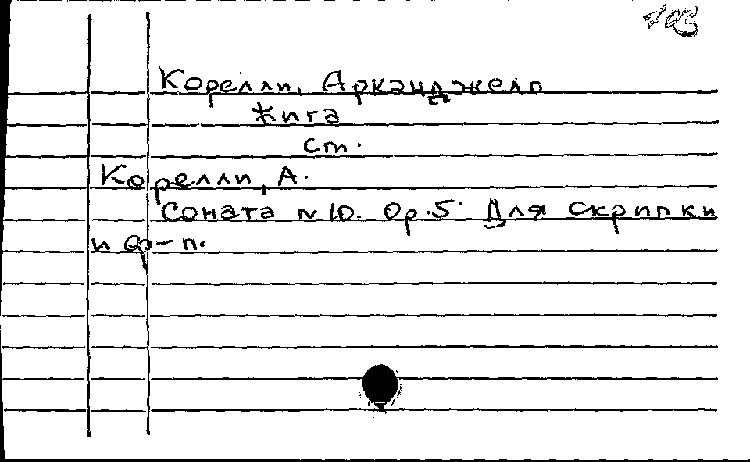 Корелли, Арканджело
Жига
ст.
Корелли, А.
Соната N 10. Op. 5. Для скрипки
и ф-п.